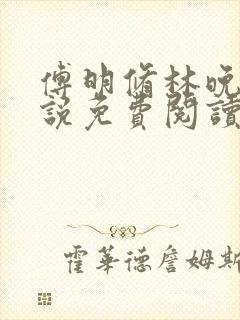 傅明脩林晚
說免費閱讀
霍華德詹姆斯